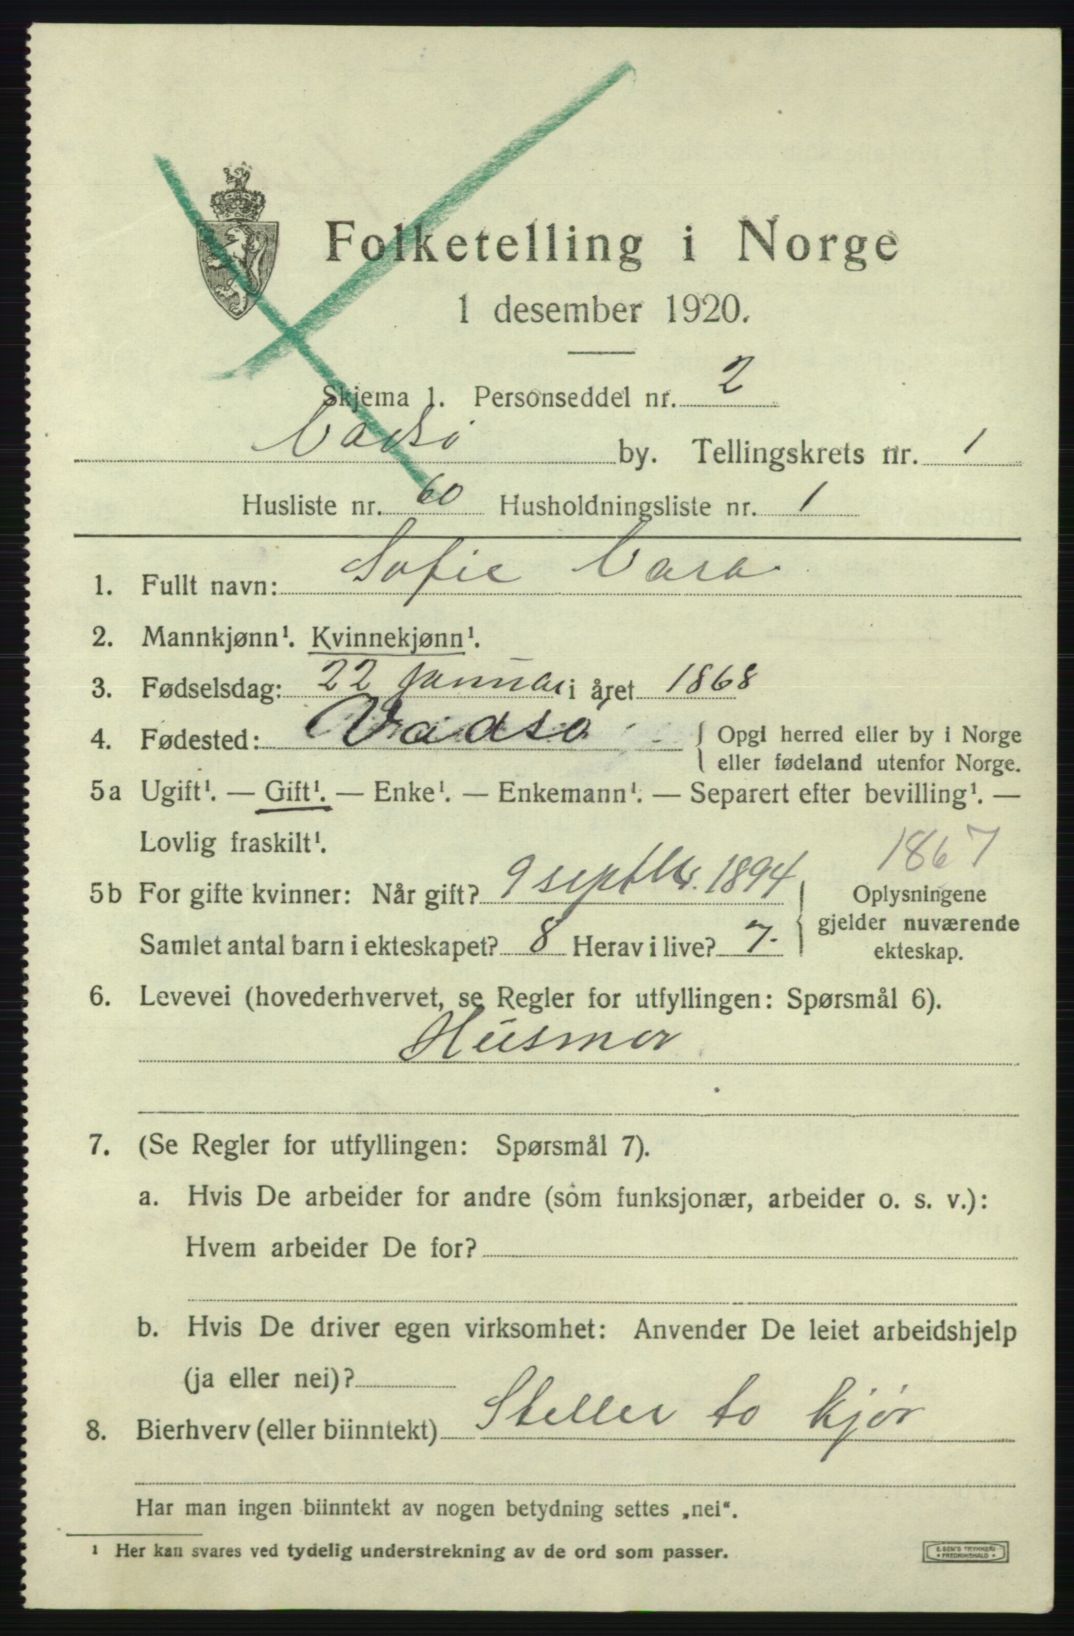 Folketelling i Norge
1 desember 1920.
Skjema 1. Personseddel nr. 2
Vadsø by. Tellingskrets nr. 1
Husliste nr. 60 Husholdningsliste nr. 1
1. Fullt navn: Sofie Vara
2. Mannkjønn¹. Kvinnekjønn¹.
3. Fødselsdag: 22 januar i året 1868
4. Fødested: Vadsø { Opgi herred eller by i Norge
eller fødeland utenfor Norge.
5a Ugift¹. — Gift¹. — Enke¹. — Enkemann¹. — Separert efter bevilling¹. —
Lovlig fraskilt¹.
1867
5b For gifte kvinner: Når gift? 9 septbr. 1894
Samlet antal barn i ekteskapet? 8 Herav i live? 7.
} Oplysningene
gjelder nuværende
ekteskap.
6. Levevei (hovederhvervet, se Regler for utfyllingen: Spørsmål 6).
Husmor
7. (Se Regler for utfyllingen: Spørsmål 7).
a. Hvis De arbeider for andre (som funksjonær, arbeider o. s. v.):
Hvem arbeider De for?
b. Hvis De driver egen virksomhet: Anvender De leiet arbeidshjelp
(ja eller nei)?
8. Bierhverv (eller biinntekt) Steller to kjør
Har man ingen biinntekt av nogen betydning settes „nei“.
¹ Her kan svares ved tydelig understrekning av de ord som passer.
E. SEM'S TRYKKERI
FREDRIKSHALD